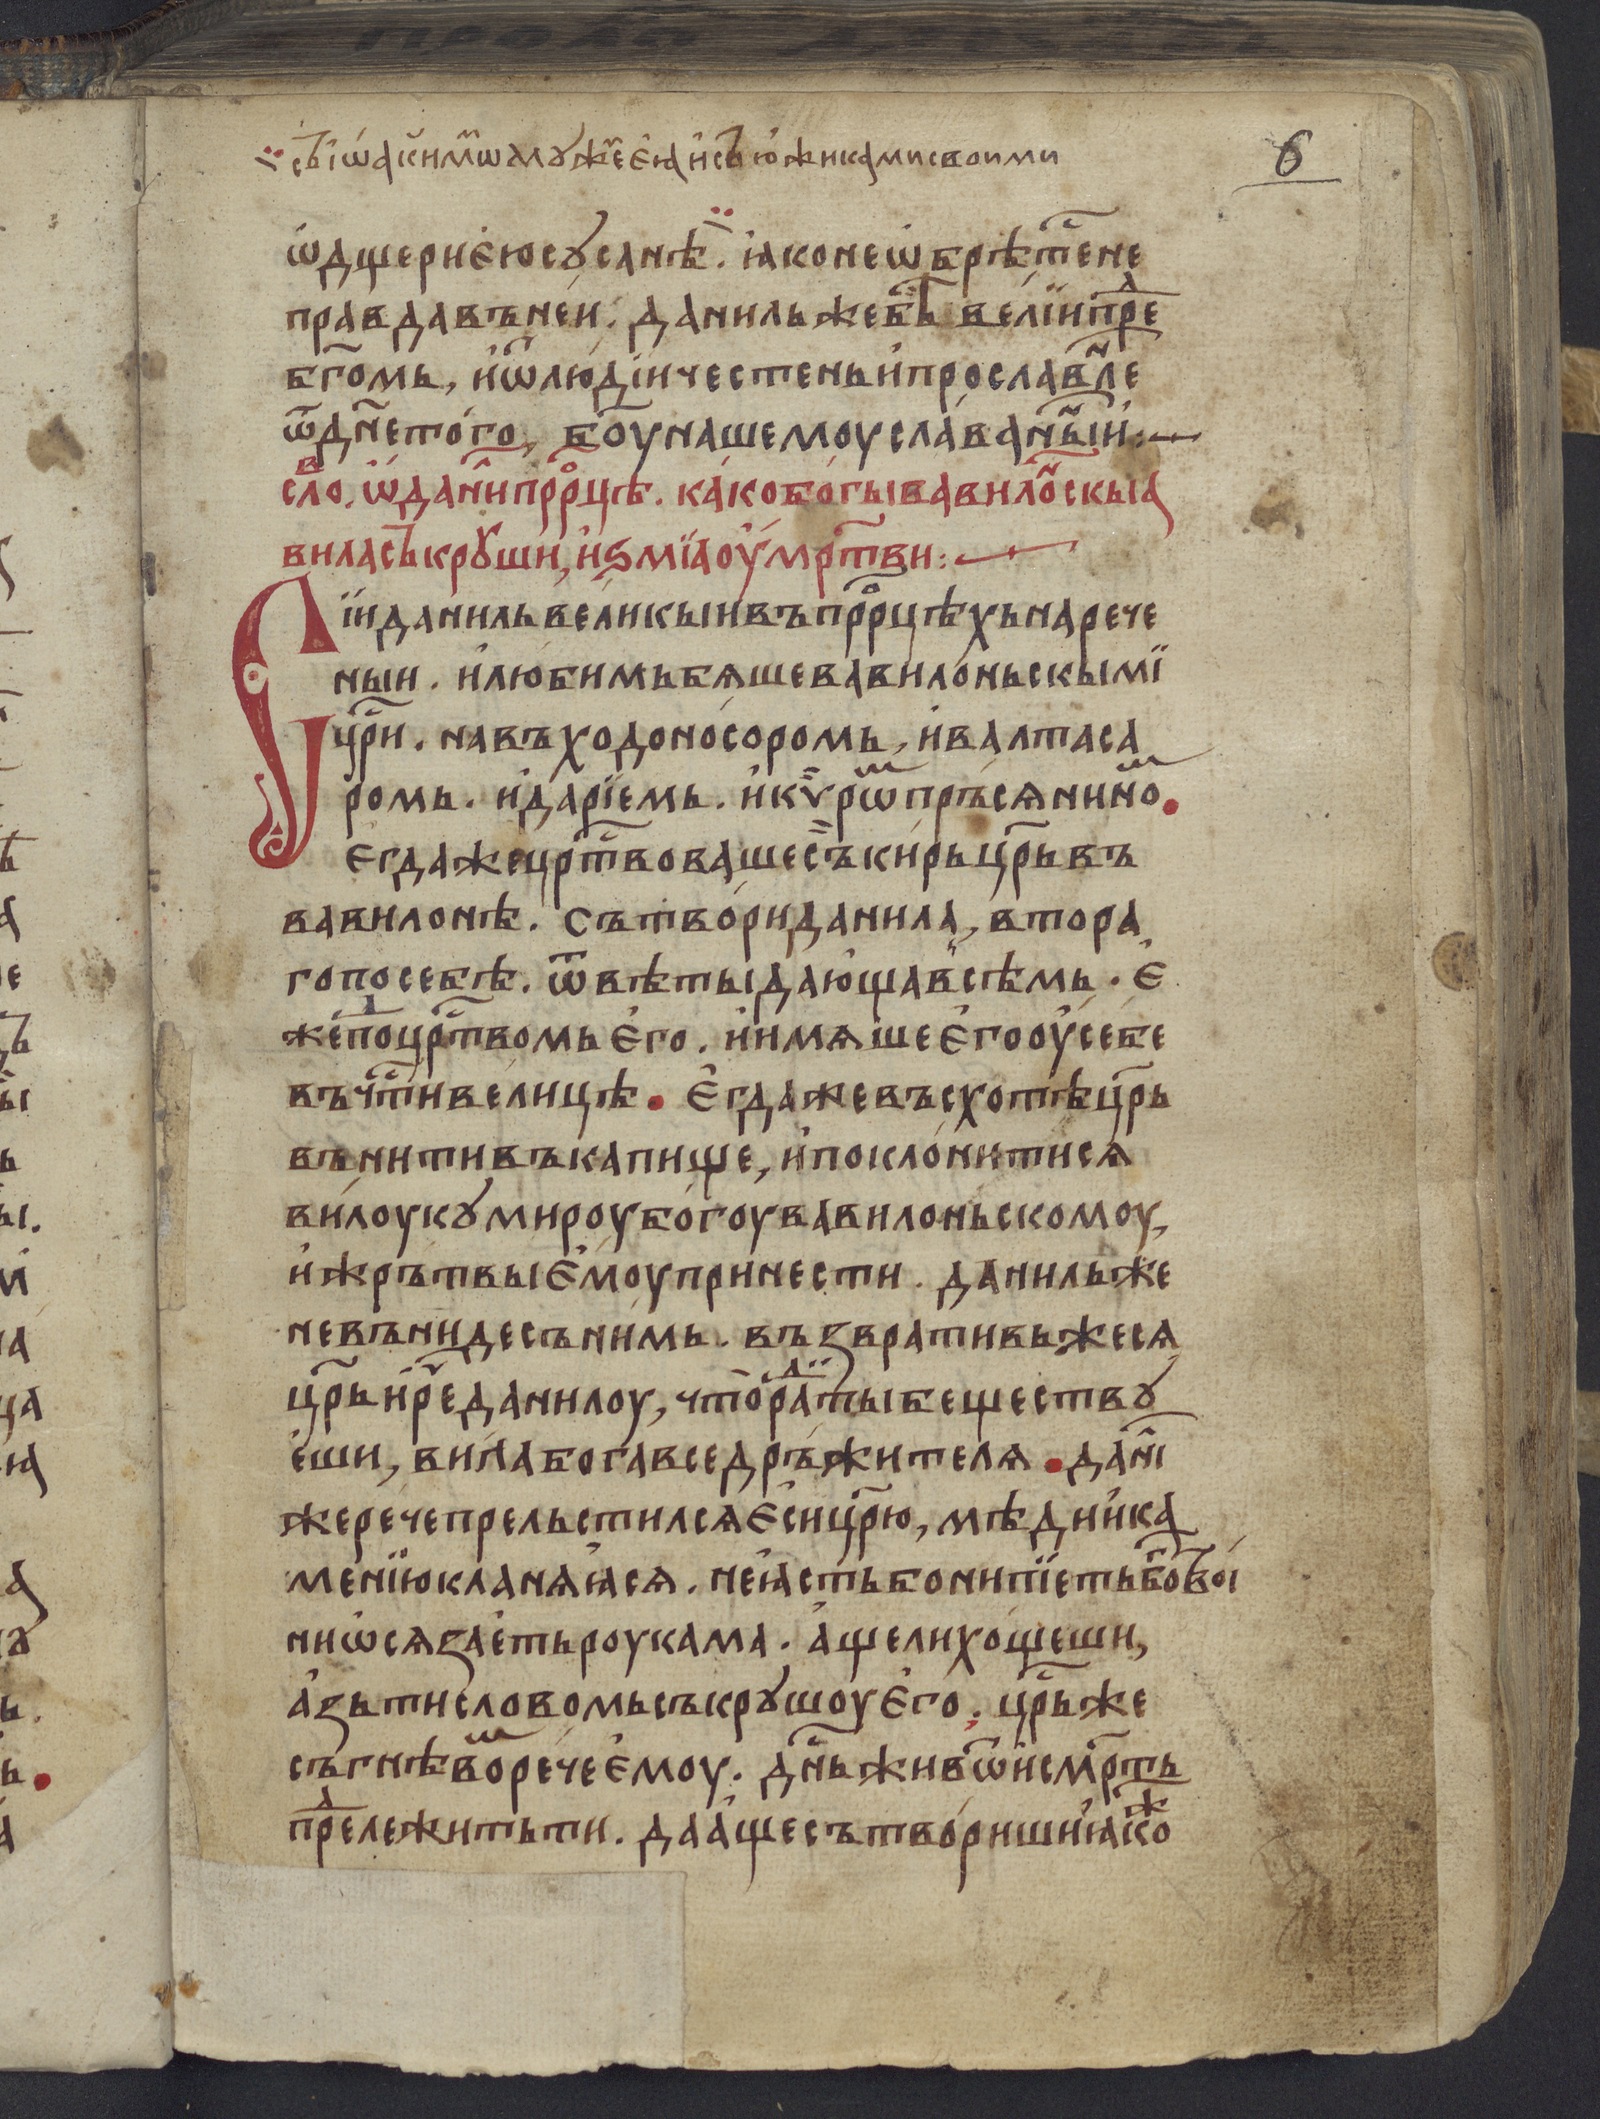 съ іѡакимѡⷨ мꙋже҇ еꙗ̀ и҆ съ ю҆жиками своими
6
ѡ҆ дщери е҆ю сꙋсанѣ. ꙗко не ѡ҆брѣте҇ не
правда въ неи. данилъ же бы҇ велїи преⷣ
бг҃омь, и҆ ѿ людїи честенъ и҆ прославле҇ⷩ
ѿ дн҃е того, бо҃у нашемоу слава ны҃ⷩи :—
слоⷡ. ѡ҆ дани҇ прⷪ҇рцѣ. како богы вавилоⷩ҇скыа
вила съкрꙋши, и҆ ѕмїа оу҆мрт҃ви :—
Сїи данилъ великыи въ прⷪ҇рцѣхъ нарече
ныи. и҆ любимъ бѧше вавилоньскымї
цр҃и. навъходоносоромь, и҆ валтаса
ромь. и҆ дарїемь. и҆ кѵрѡⷨ пръсѧниноⷨ.
Е҆гда же црт҃вовашес̾ъ киръ цр҃ь въ
вавилонѣ. сътвори данила, втора
го по себѣ. ѿвѣты дающа всѣмь. е҆
же поⷣ црт҃вомь е҆го. и҆ имѧше е҆го оу҆ себе
въ чт҇и велицѣ. Е҆гда же въсхотѣ цр҃ь
вънити въ капище, и҆ поклонитисѧ
вилоу кꙋмироу богоу вавилоньскомоу,
и҆ жрътвы е҆моу принести. данилъ же
не въниде съ нимь. възврати бъ же сѧ
цр҃ь и҆ ре҇ данилоу, что раⷣ ты беществꙋ
еши, вила бога вседръжителѧ. дани҇
же рече прельстилсѧ е҆си цр҃ю, мѣди и҆ ка
менїю кланѧꙗсѧ. не ꙗсть бо ни пїеть бг҃ъ во і
ни ѡ҆сѧзаеть роукама. аще ли хощеши,
а҆зъ ти словомь съкрꙋшоу е҆го. цр҃ь же
съ гнѣвоⷨ рече е҆моу. дн҇ь живѿ и҆ смр҃ть
преⷣлежить ти. да а҆ще сътвориши ꙗ҆коⷤ